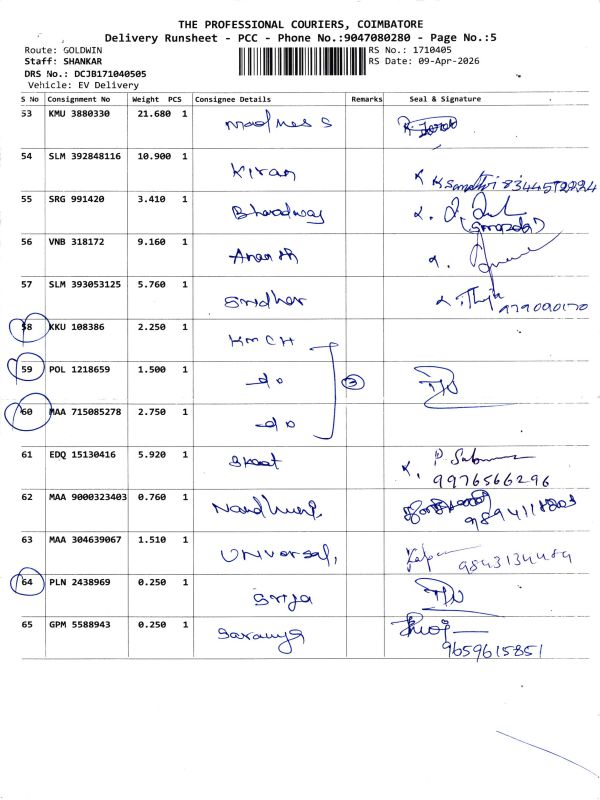 THE PROFESSIONAL COURIERS, COIMBATORE
Delivery Runsheet - PCC - Phone No.:9047080280 - Page No.:5
Route: GOLDWIN RS No.: 1710405
Staff: SHANKAR RS Date: 09-Apr-2026
DRS No.: DCJB171040505
Vehicle: EV Delivery
S No Consignment No Weight PCS Consignee Details Remarks Seal & Signature
53 KMU 3880330 21.680 1
54 SLM 392848116 10.900 1 Kiran
55 SRG 991420 3.410 1 Bharadwaj
56 VNB 318172 9.160 1
57 SLM 393053125 5.760 1 Sridhar
58 KKU 108386 2.250 1 KMCH
59 POL 1218659 1.500 1 -do 3
60 MAA 715085278 2.750 1 -do
61 EDQ 15130416 5.920 1 9976566296
62 MAA 9000323403 0.760 1
63 MAA 304639067 1.510 1 Universal, 9843134484
64 PLN 2438969 0.250 1
65 GPM 5588943 0.250 1 Saranya 9659615851